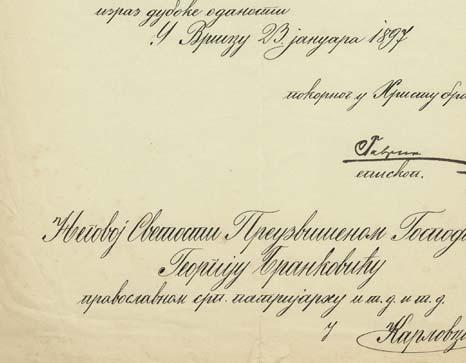 израз дубоке оданости
У Вршцу 23. јануара 1897
покорног у Христу бра
Гаврил
епископ.
Његовој Светости Преузвишеном Господи
Георгију Бранковићу
православном срп. патријарху и т. д. и т. д.
у Карловци